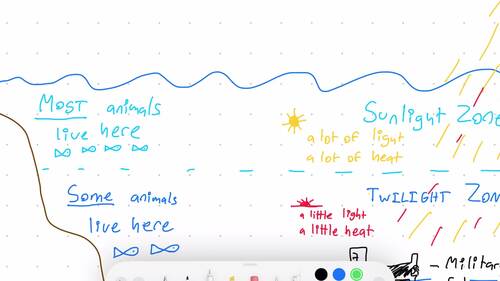 MOST animals
live here
Sunlight ZONE
a lot of light
a lot of heat
Some animals
live here
TWILIGHT ZON
a little light
a little heat
7
- Militar